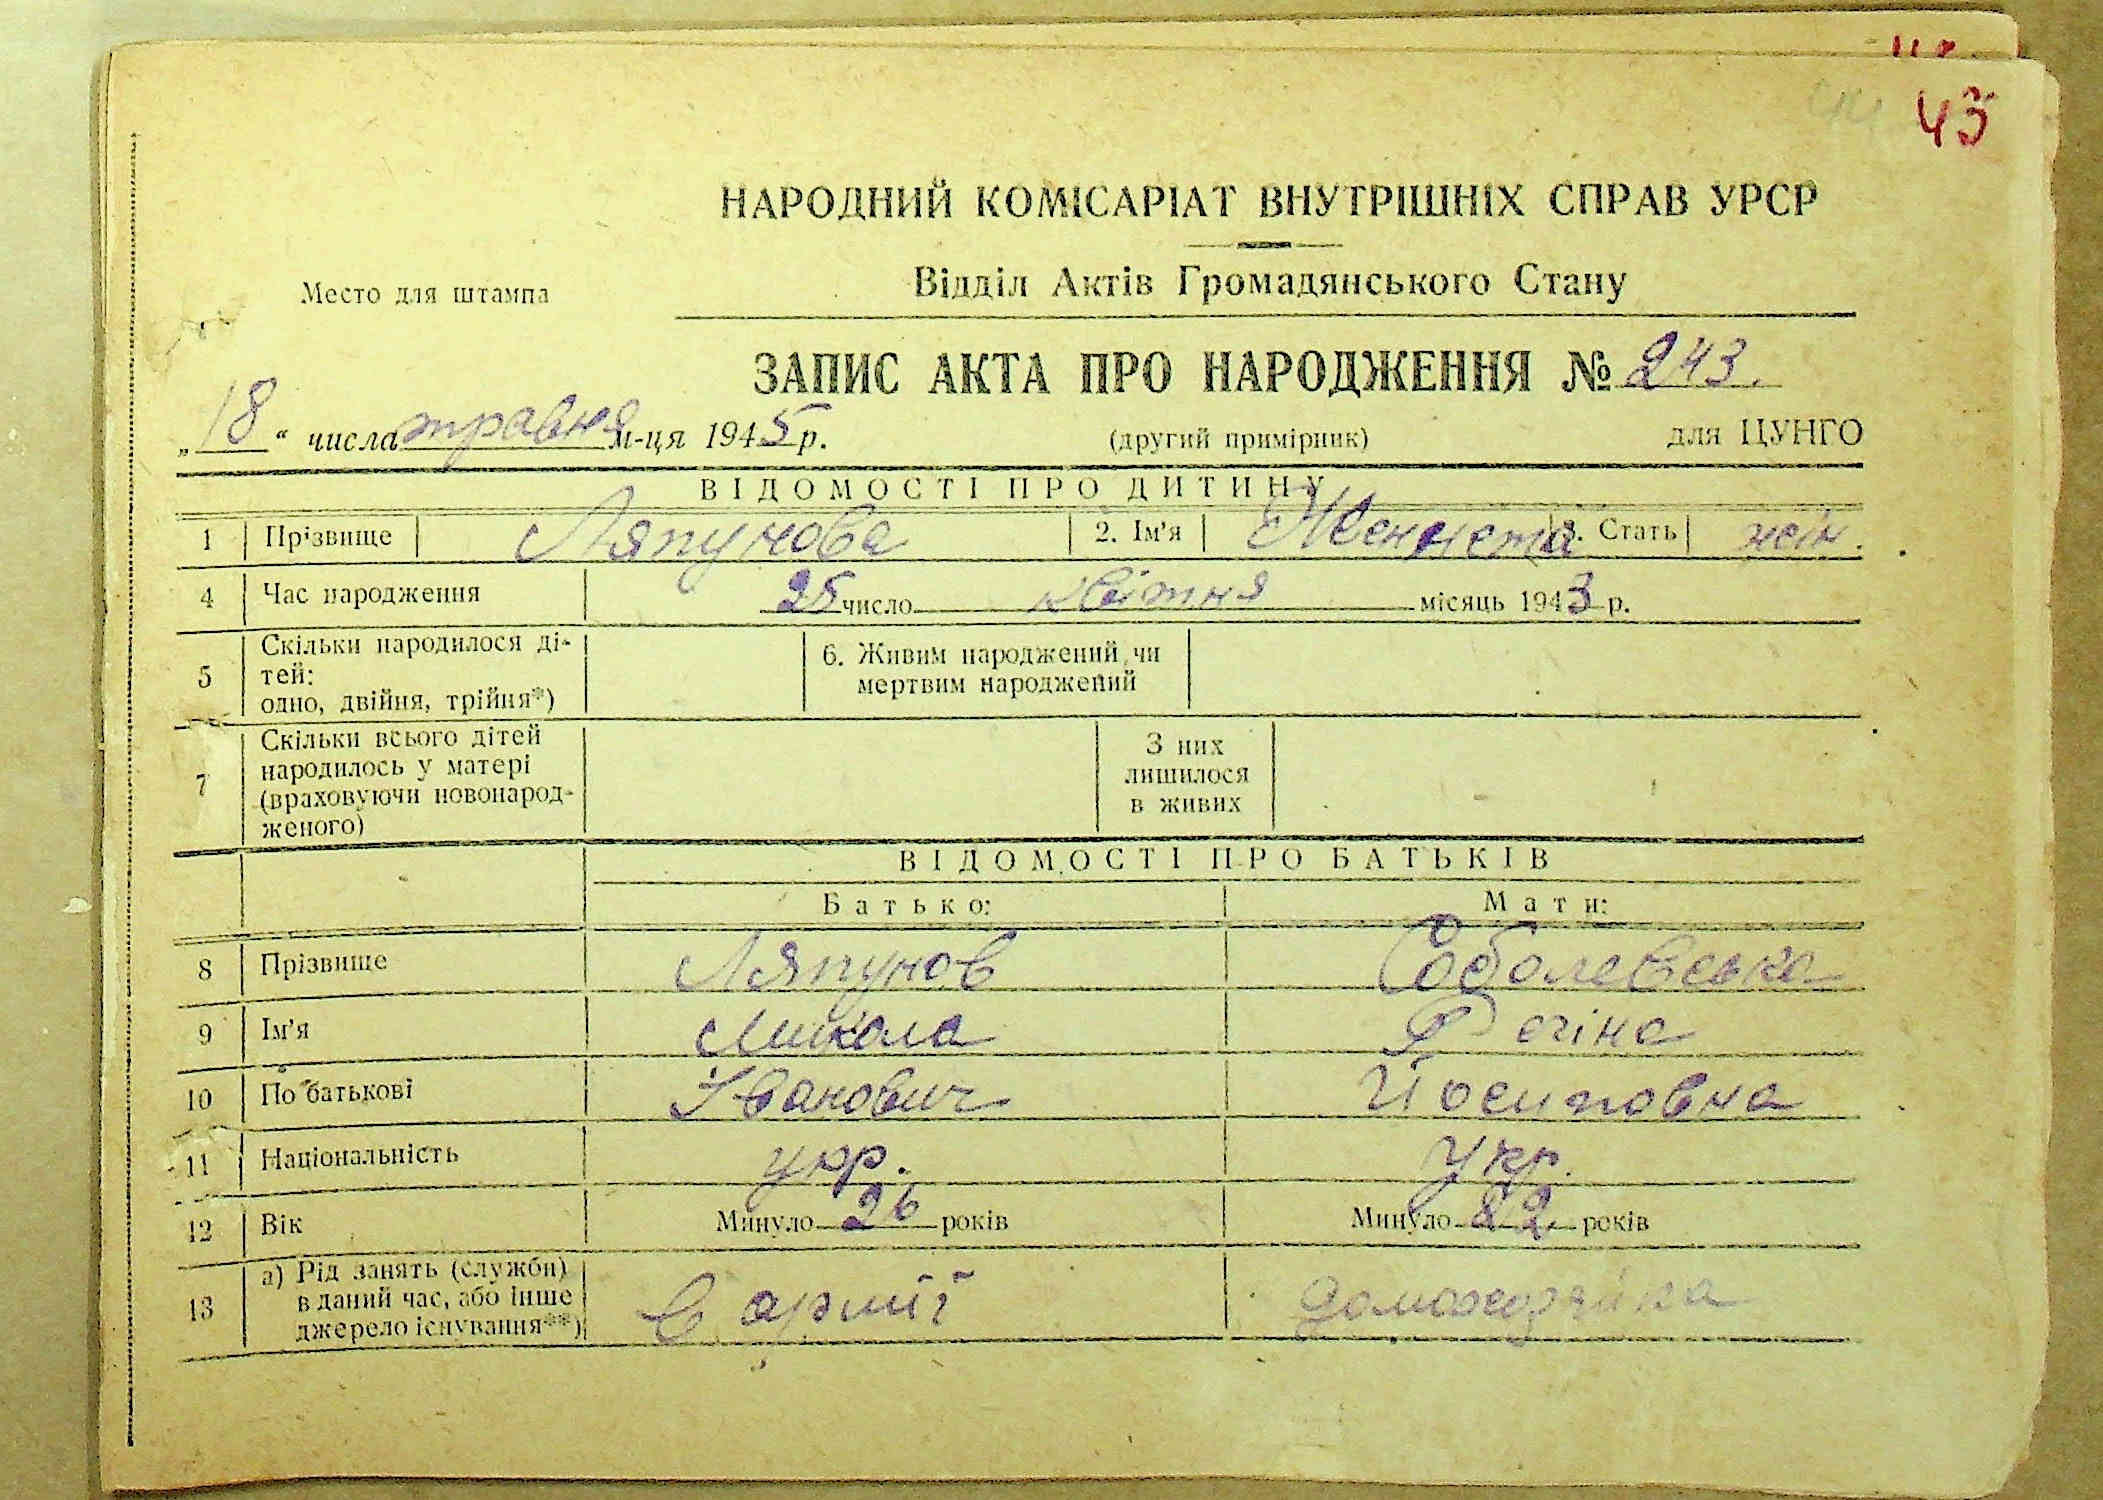 43
НАРОДНИЙ КОМІСАРІАТ ВНУТРІШНІХ СПРАВ УРСР
Место для штампа
Відділ Актів Громадянського Стану
ЗАПИС АКТА ПРО НАРОДЖЕННЯ № 243.
„18“ числа травня м-ця 1945 р. (другий примірник) для ЦУНГО
ВІДОМОСТІ ПРО ДИТИНУ
1 Прізвище Ляпунова 2. Ім'я Женнета 3. Стать жін.
4 Час народження 25 число квітня місяць 1943 р.
5 Скільки народилося ді-
тей:
одно, двійня, трійня*)
6. Живим народжений чи
мертвим народжений
7 Скільки всього дітей
народилось у матері
(враховуючи новонарод-
женого)
З них
лишилося
в живих
ВІДОМОСТІ ПРО БАТЬКІВ
Батько: Мати:
8 Прізвище Ляпунов Соболевська
9 Ім'я Микола Регіна
10 По батькові Іванович Йосиповна
11 Національність укр. Укр.
12 Вік Минуло 26 років Минуло 22 років
13 а) Рід занять (служби)
в даний час, або інше
джерело існування**)
в армії домохозяйка